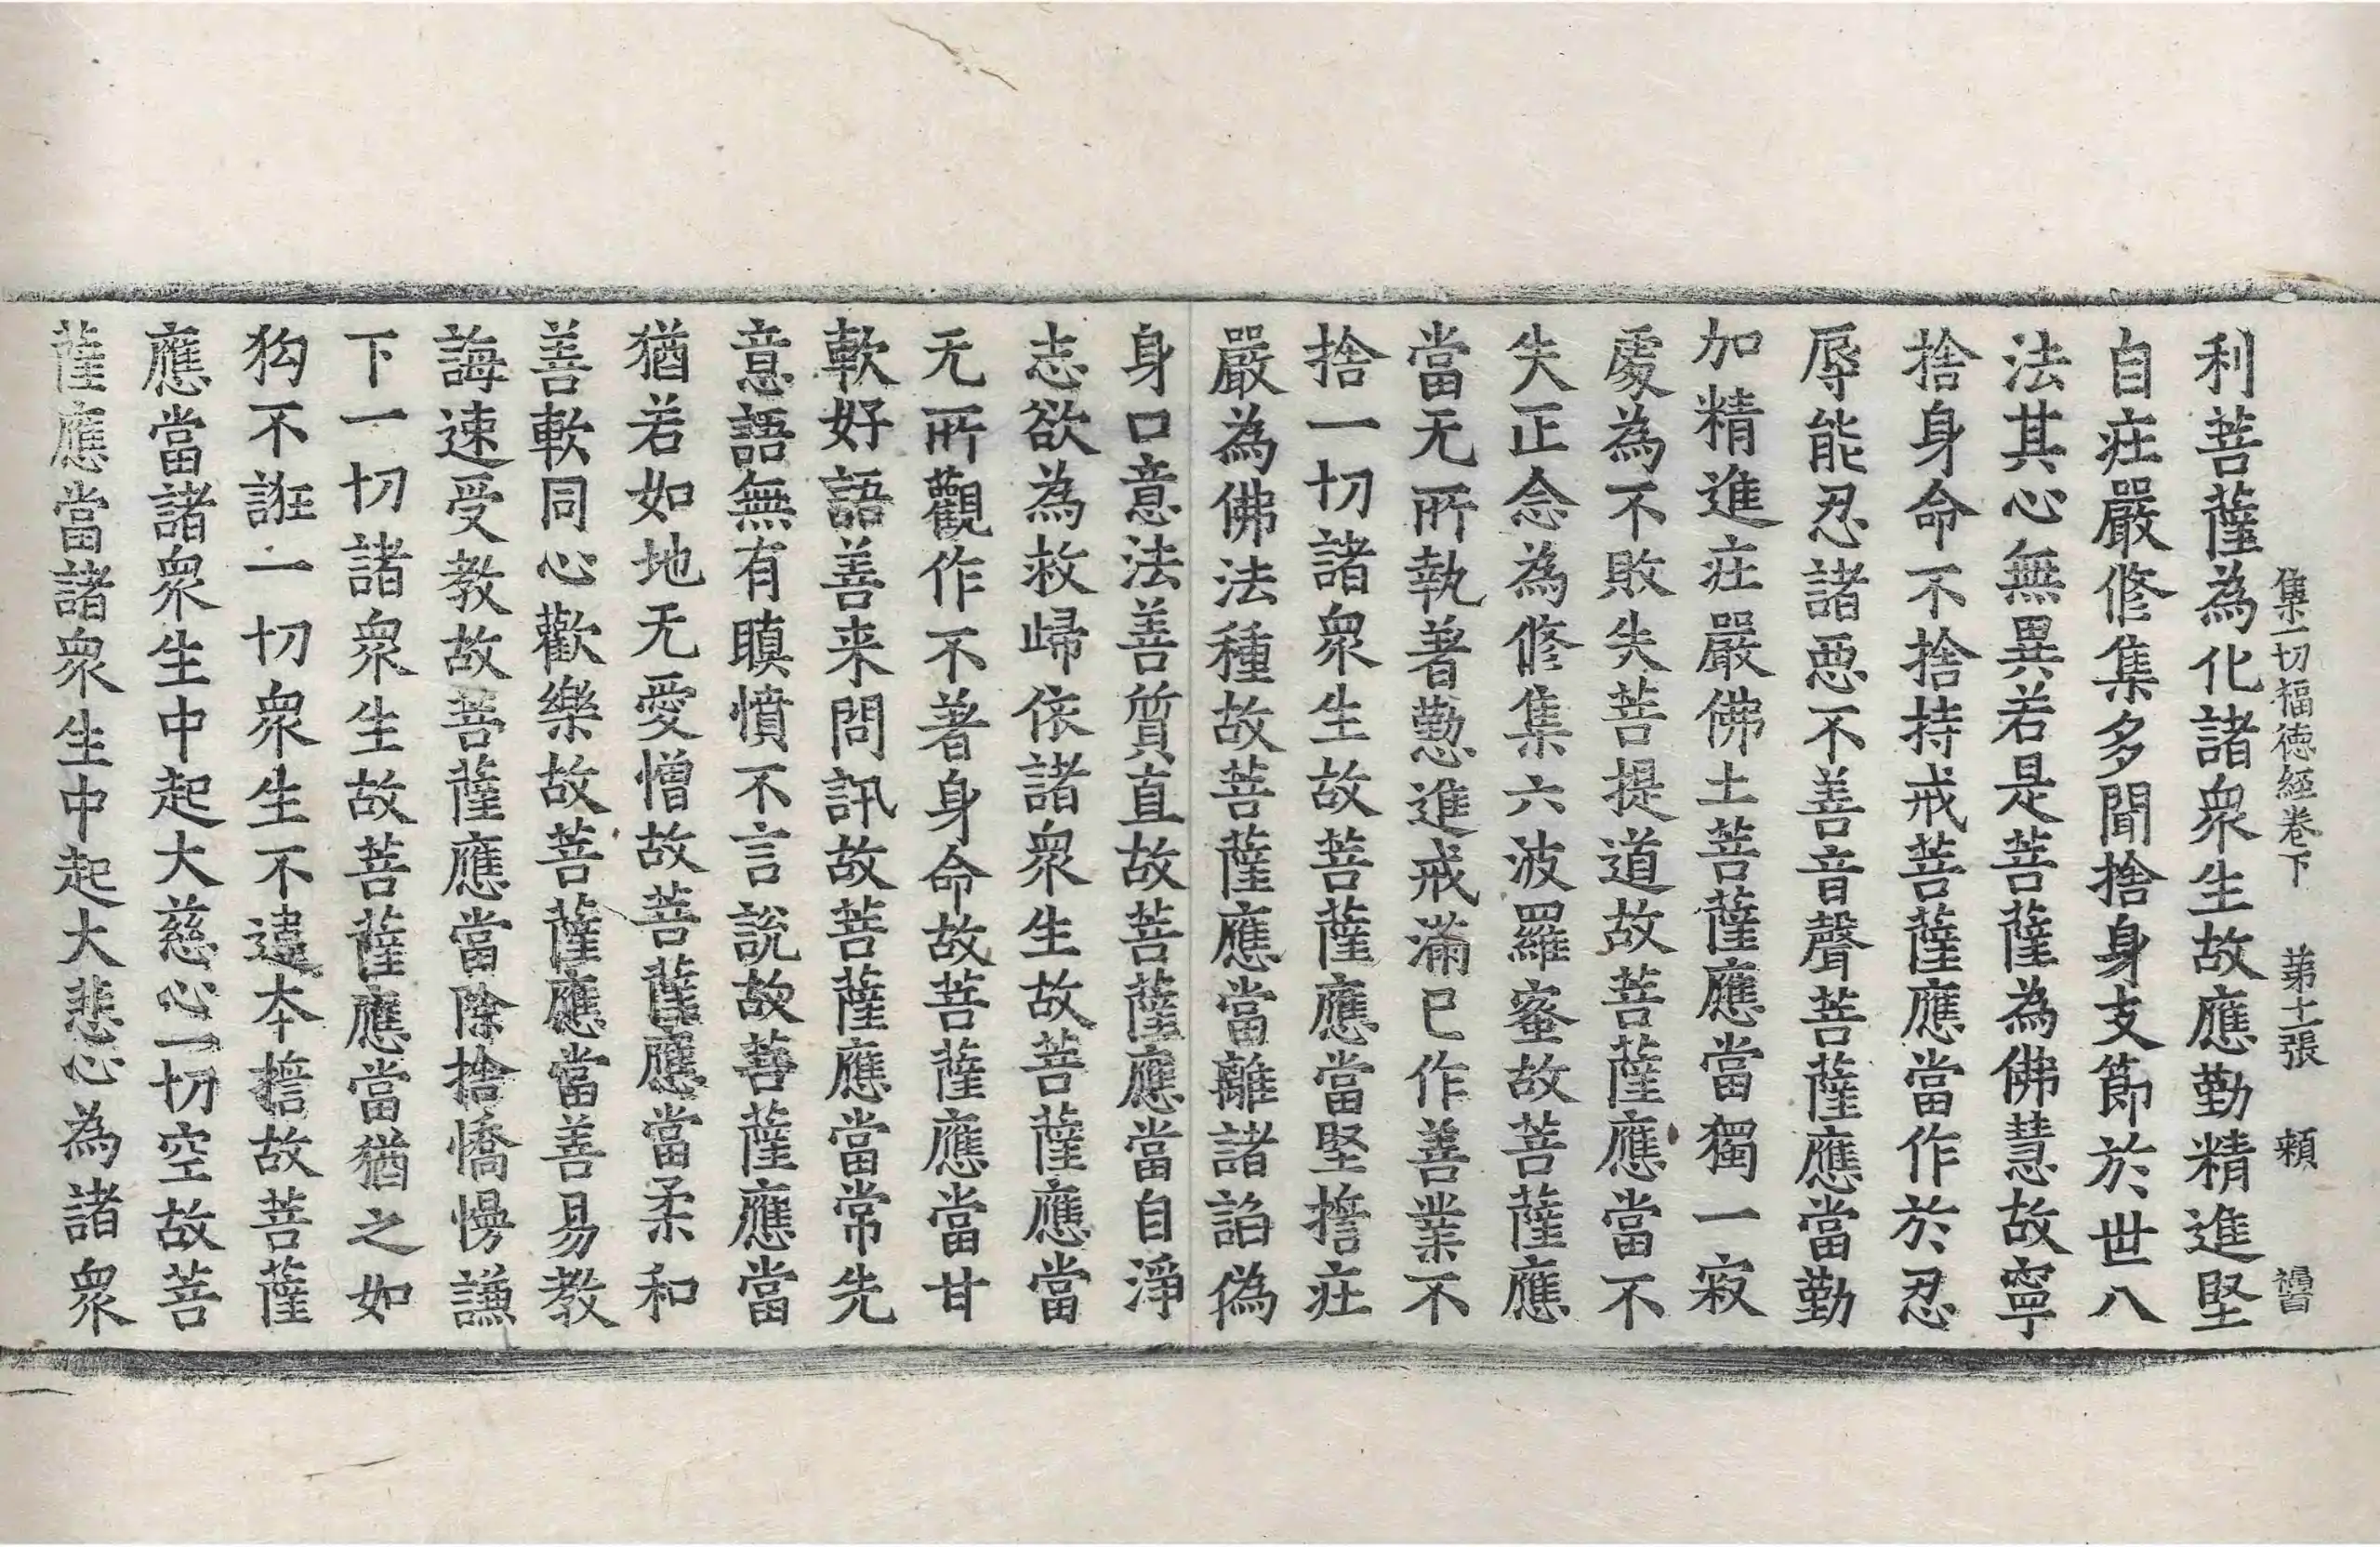 集一切福徳経卷下　苐十二張　頼
利菩薩為化諸衆生故應勤精進堅
自莊嚴修集多聞捨身支節於世八
法其心無異若是菩薩為佛慧故寧
捨身命不捨持戒菩薩應當作於忍
辱能忍諸惡不善音聲菩薩應當勤
加精進莊嚴佛土菩薩應當獨一寂
處為不敗失菩提道故菩薩應當不
失正念為修集六波羅蜜故菩薩應
當无所執著懃進戒滿已作善業不
捨一切諸衆生故菩薩應當堅誓莊
嚴為佛法種故菩薩應當離諸諂偽
身口意法善質直故菩薩應當自淨
志欲為救歸依諸衆生故菩薩應當
无所觀作不著身命故菩薩應當甘
軟好語善来問訊故菩薩應當常先
意語無有瞋憤不言說故菩薩應當
猶若如地无愛憎故菩薩應當柔和
善軟同心歡樂故菩薩應當善易教
誨速受教故菩薩應當除捨憍慢謙
下一切諸衆生故菩薩應當猶之如
狗不誑一切衆生不違本誓故菩薩
應當諸衆生中起大慈心一切空故菩
薩應當諸衆生中起大悲心為諸衆